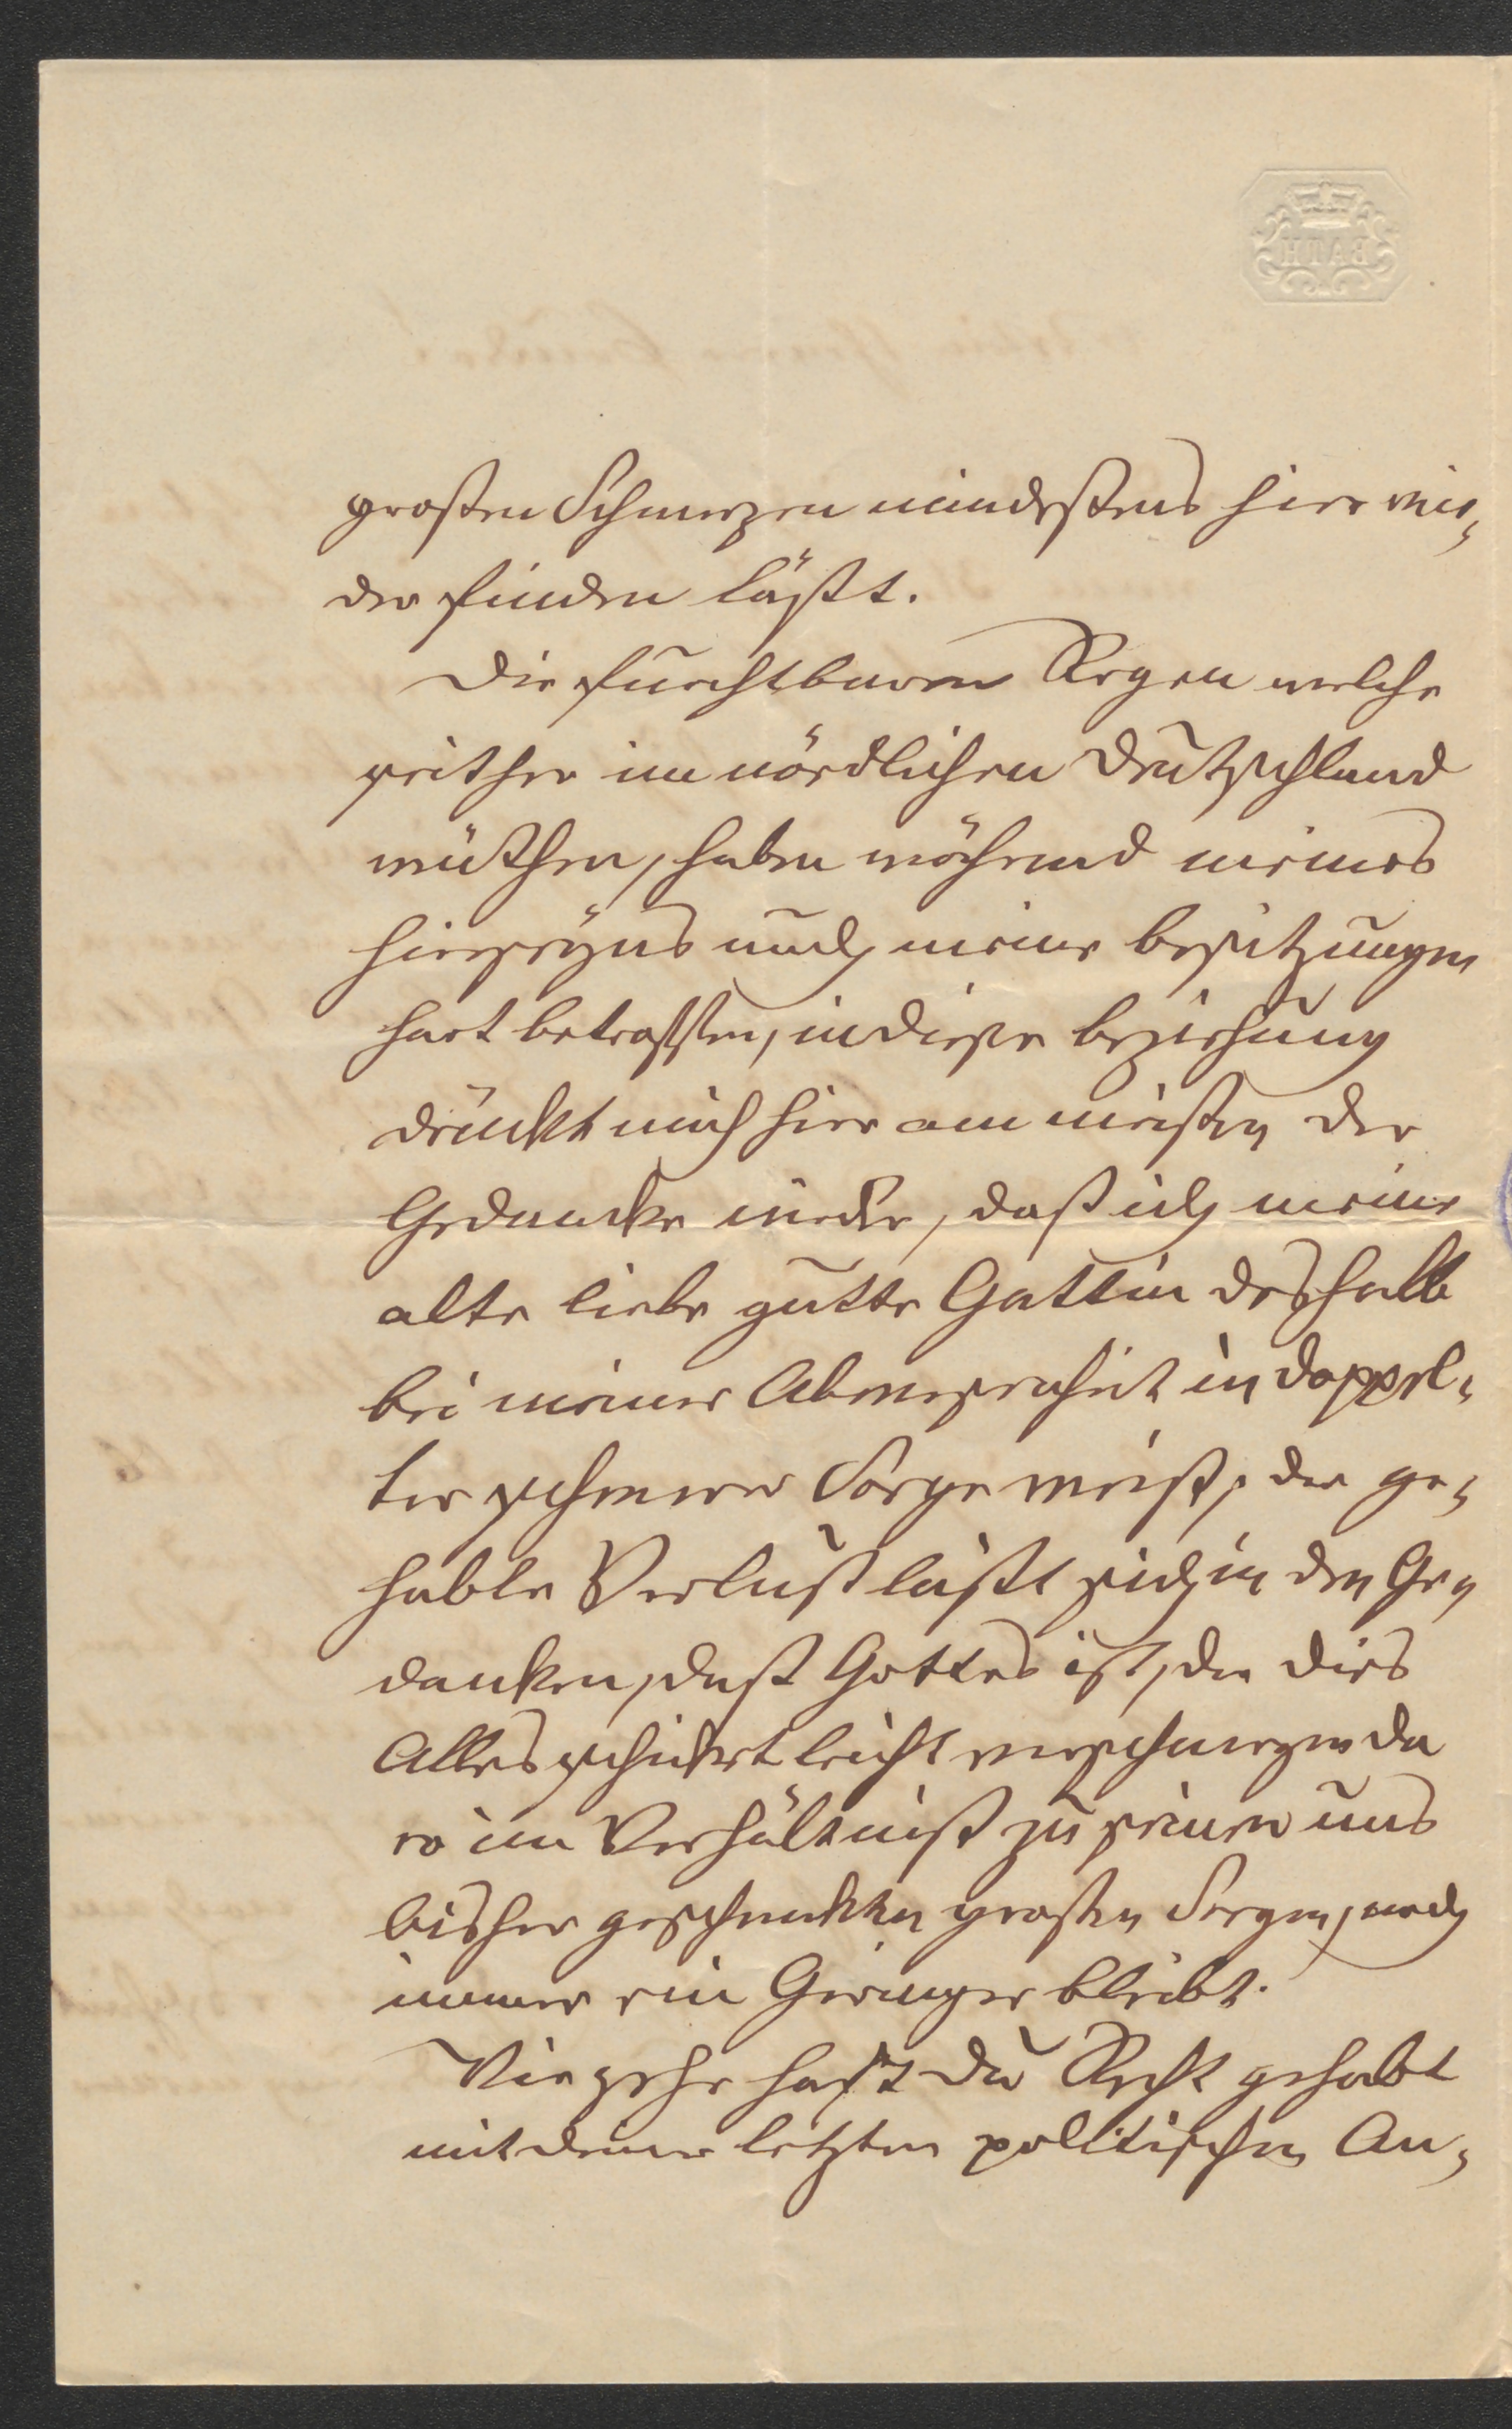 BATH
großen Schmerzen mindestens hier wie-
der finden läßt.
Die furchtbaren Regen welche
seither im nördlichen Deutschland
wüthen, haben während meines
Hierseyns auch meine Besitzungen
hart betroffen, in dieser Beziehung
drückt mich hier am meisten der
Gedancke nieder, daß ich meine
alte liebe gutte Gattin deshalb
bei meiner Abwesenheit in doppel-
ter schwerer Sorge weiß, der ge-
habte Verlust läßt sich in den Ge-
danken, daß Gottes ist, der dies
Alles schickt leicht verschmerzen da
er im Verhältniß zu seinen uns
bisher geschenkten großen Segen, noch
immer ein Geringer bleibt.
Wie sehr hast Du Recht gehabt
mit deiner letzten politischen An-